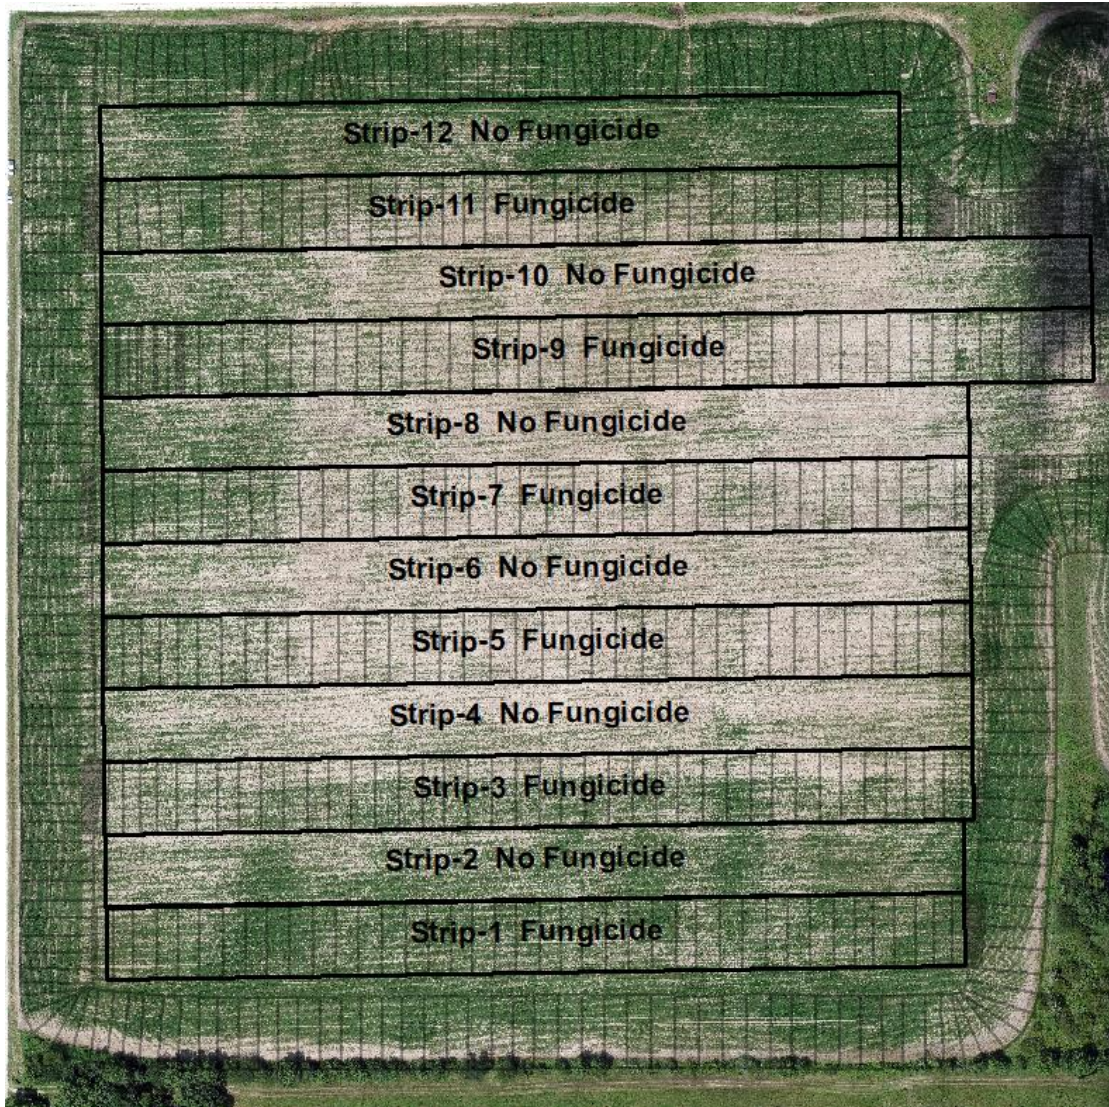 Strip-12 No Fungicide
Strip-11 Fungicide
Strip-10 No Fungicide
Strip-9 Fungicide
Strip-8 No Fungicide
Strip-7 Fungicide
Strip-6 No Fungicide
Strip-5 Fungicide
Strip-4 No Fungicide
Strip-3 Fungicide
Strip-2 No Fungicide
Strip-1 Fungicide